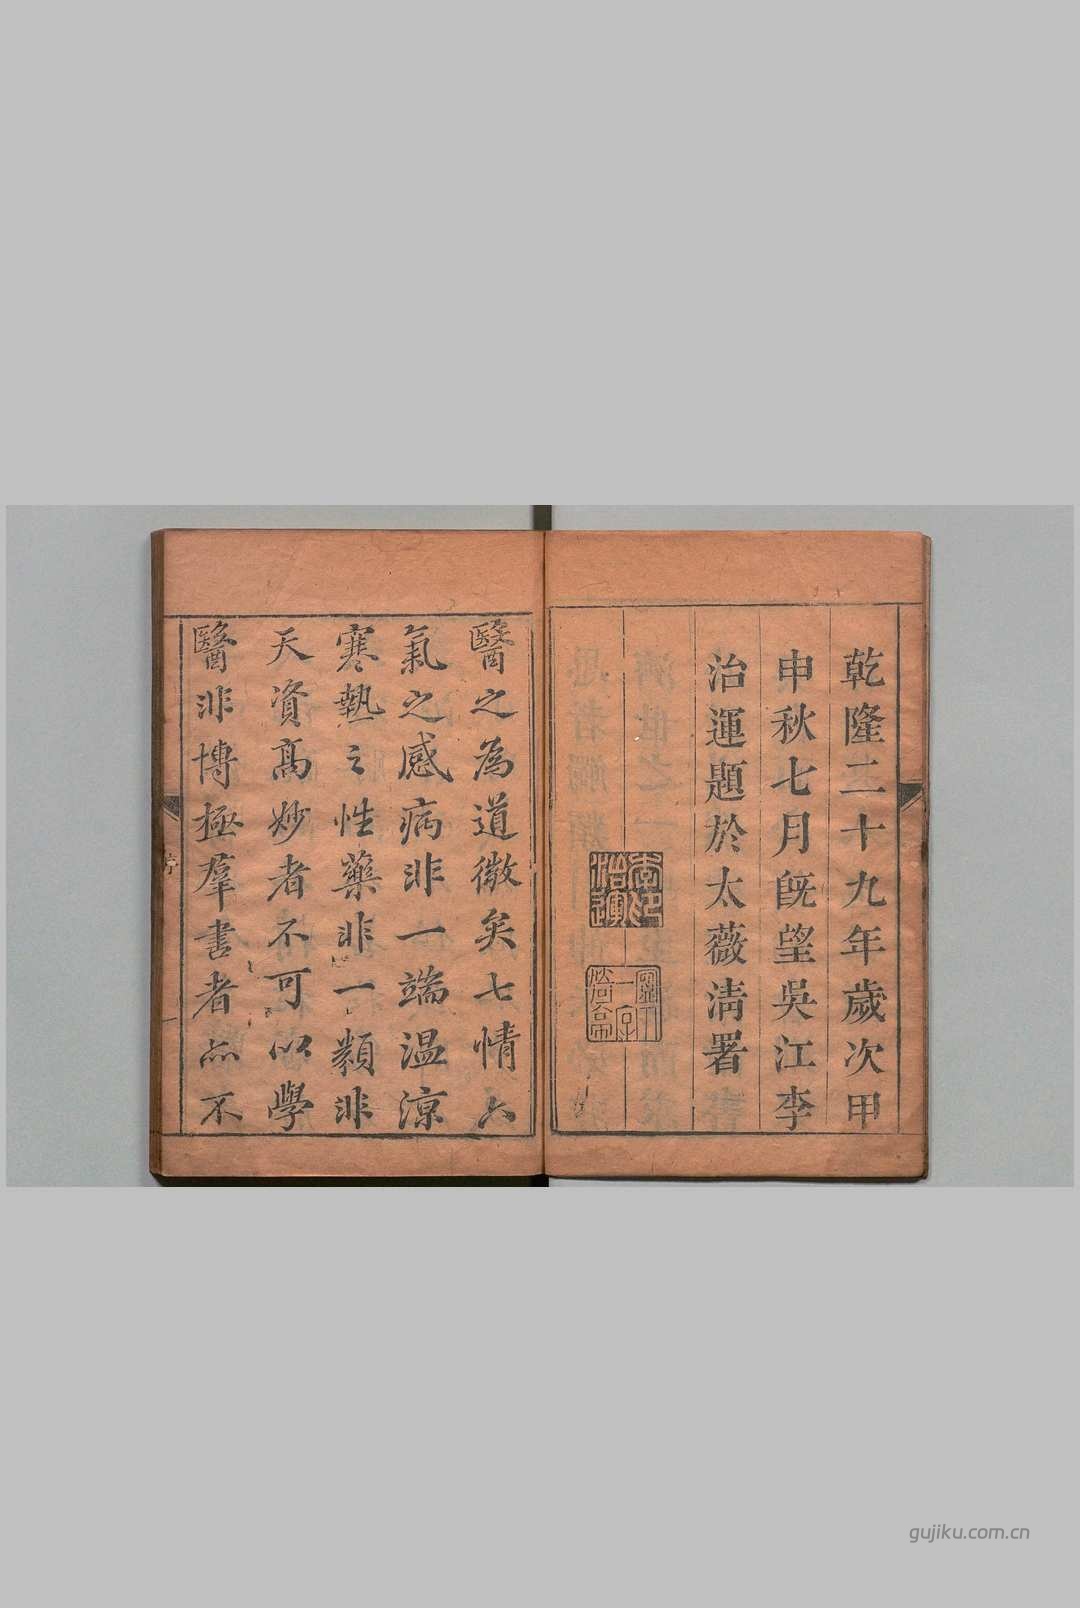 乾隆二十九年歲次甲
申秋七月旣望吳江李
治運題於太薇淸署
李印
治運
醫之為道微矣七情六
氣之感病非一端温涼
寒熱之性藥非一類非
天資高妙者不可以學
醫非博極羣書者亦不
序
一
gujiku.com.cn